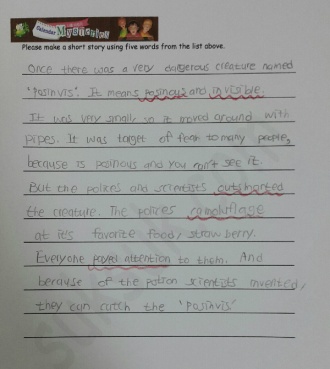 Calendar Mysteries
Please make a short story using five words from the list above.
Once there was a very dangerous creature named
"Posinvis". It means posinous and invisible.
It was very small so it moved around with
pipes. It was target of fear to many people,
because is posinous and you can't see it.
But the polices and scientists outshorted
the creature. The polices camouflage
at its favorite food, strawberry.
Everyone payed attention to them. And
because of the potion scientists invented,
they can catch the 'Posinvis'